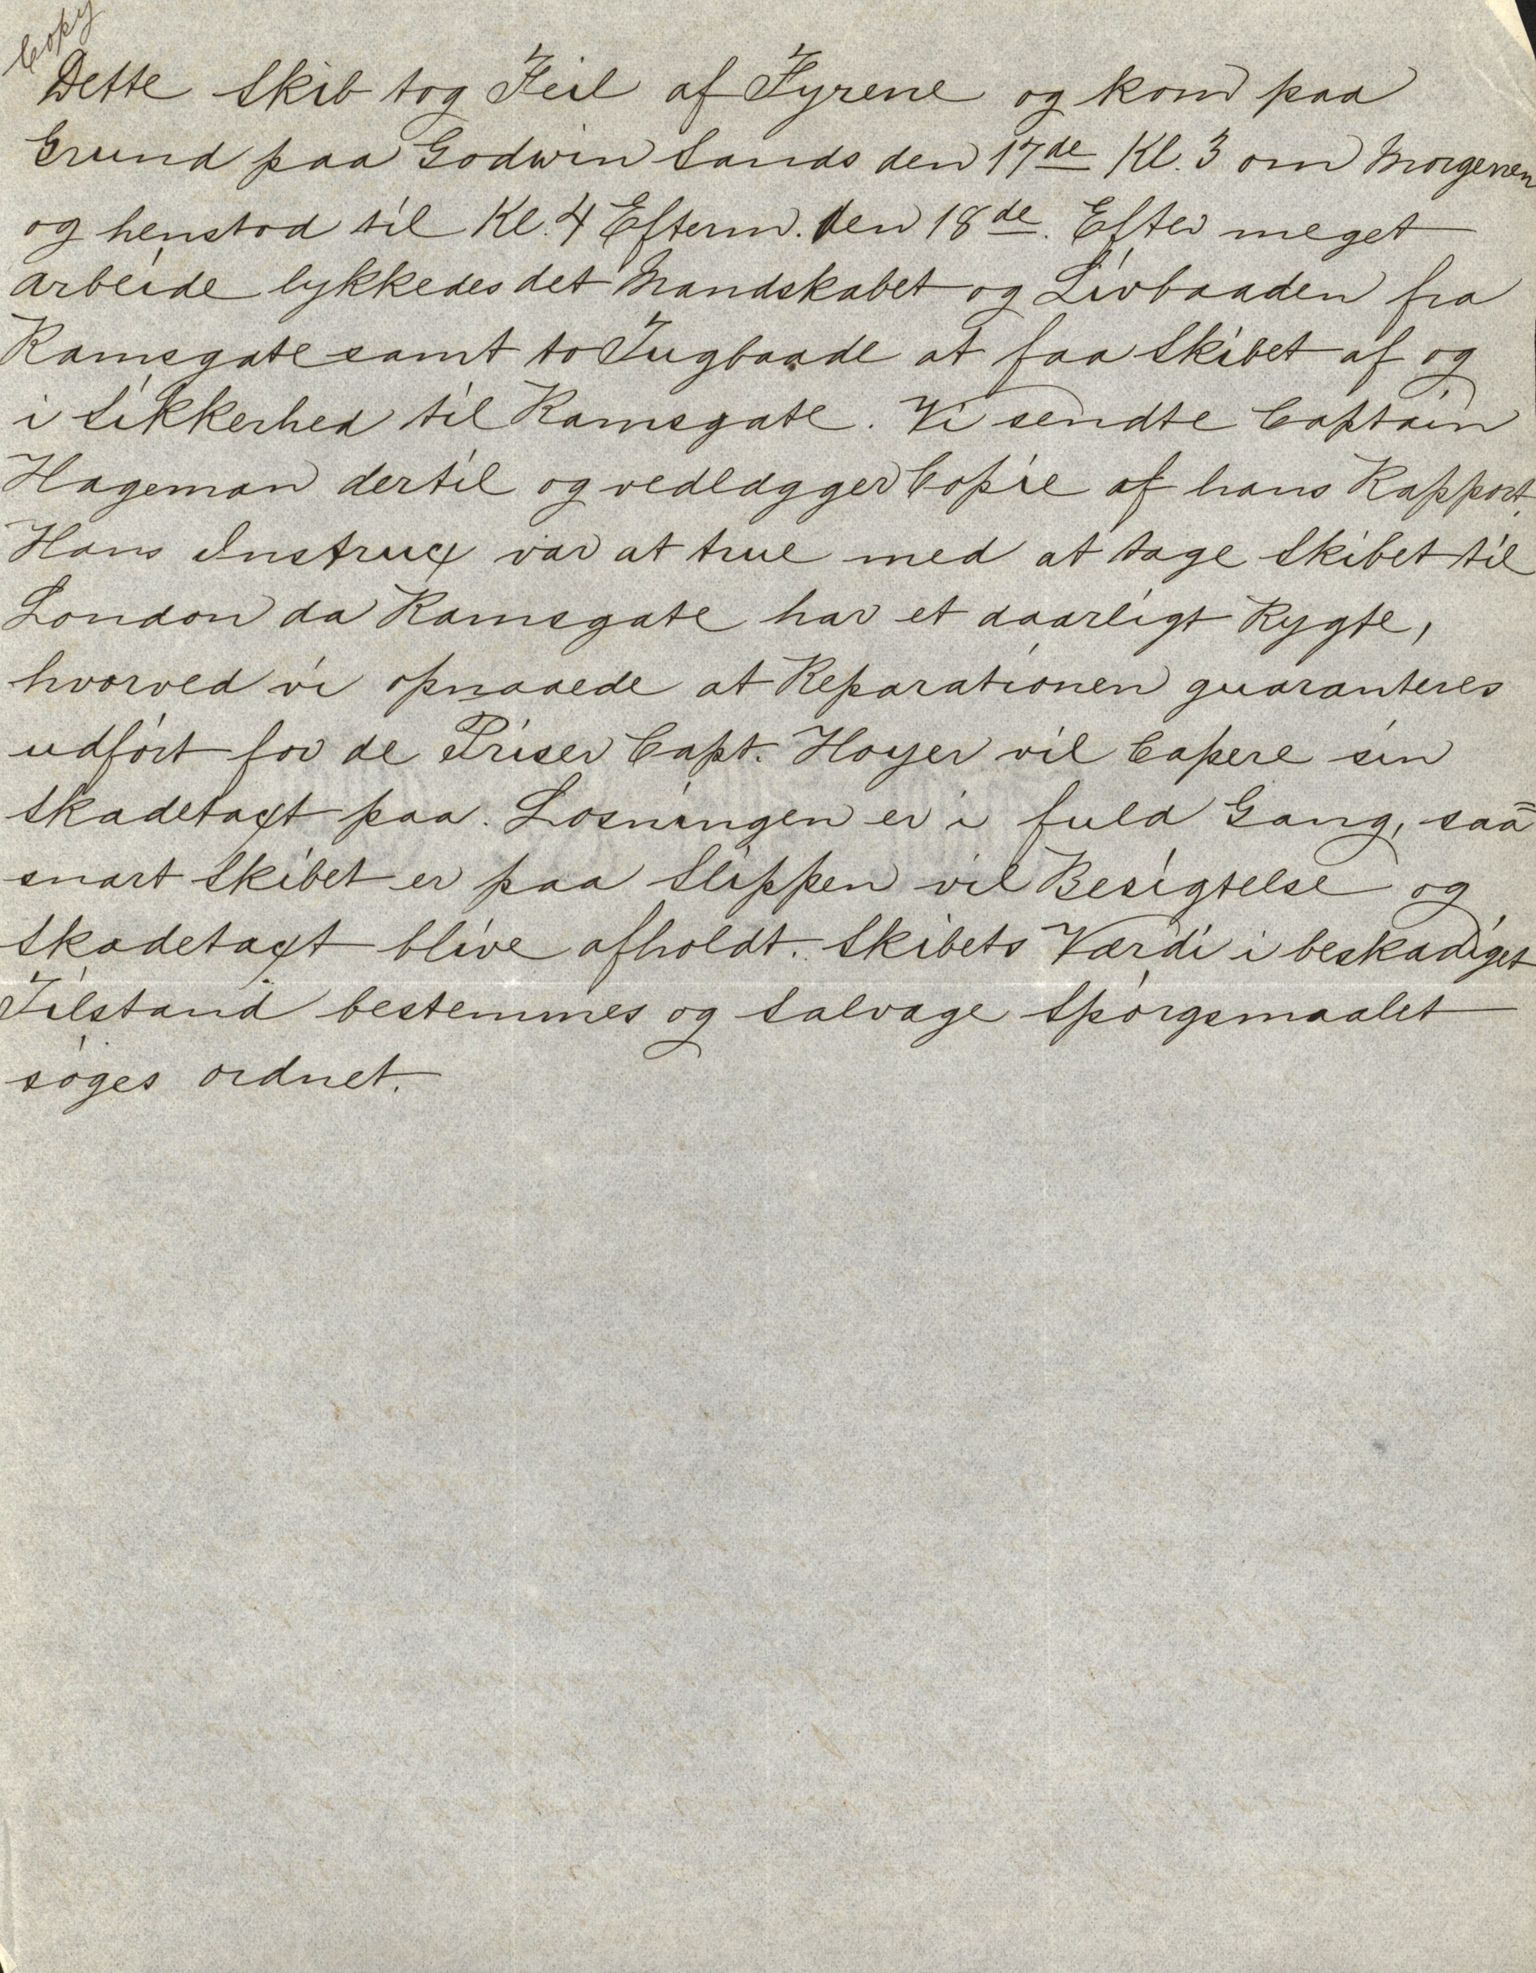 Copy
Dette Skib tog Feil af Fyrene og kom paa
Grund paa Godwin Sands den 17de Kl. 3 om Morgenen
og henstod til Kl. 4 Efterm. den 18de. Efter meget
arbeide lykkedes det Mandskabet og Livbaaden fra
Ramsgate samt to Tugbaade at faa Skibet af og
i Sikkerhed til Ramsgate. Vi sendte Captain
Hageman dertil og vedlægger Copie af hans Rapport.
Hans Instrux var at true med at tage Skibet til
London da Ramsgate har et daarligt Rygte,
hvorved vi opnaaede at Reparationen guaranteres
udført for de Priser Capt. Hoyer vil basere sin
Skadetaxt paa. Losningen er i fuld Gang, saa=
snart Skibet er paa Slippen vil Besigtelse og
Skadetaxt blive afholdt. Skibets Værdi i beskadiget
Tilstand bestemmes og Salvage Spørgsmaalet
søges ordnet.